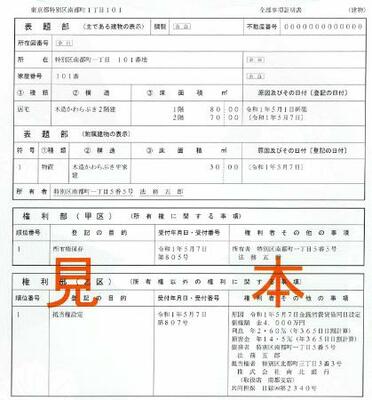 東京都特別区南都町1丁目101 全部事項証明書 (建物)
表題部 (主である建物の表示) 調製 余白 不動産番号 0000000000000
所在図番号 余白
所在 特別区南都町一丁目 101番地 余白
家屋番号 101番 余白
① 種類 ② 構造 ③ 床面積 ㎡ 原因及びその日付〔登記の日付〕
居宅 木造かわらぶき2階建 1階 80:00 令和1年5月1日新築
2階 70:00 〔令和1年5月7日〕
表題部 (附属建物の表示)
符号 ①種類 ② 構造 ③ 床面積 ㎡ 原因及びその日付〔登記の日付〕
1 物置 木造かわらぶき平家建 30:00 〔令和1年5月7日〕
所有者 特別区南都町一丁目5番5号 法務五郎
権利部(甲区) (所有権に関する事項)
順位番号 登記の目的 受付年月日・受付番号 権利者その他の事項
1 所有権保存 令和1年5月7日 所有者 特別区南都町一丁目5番5号
第805号 法務五郎
権利部(乙区) (所有権以外の権利に関する事項)
順位番号 登記の目的 受付年月日・受付番号 権利者その他の事項
1 抵当権設定 令和1年5月7日 原因 令和1年5月7日金銭消費貸借同日設定
第807号 債権額 金4,000万円
利息 年2・60%(年365日日割計算)
損害金 年14・5%(年365日日割計算)
債務者 特別区南都町一丁目5番5号
法務五郎
抵当権者 特別区北都町三丁目3番3号
株式会社南北銀行
(取扱店 南都支店)
共同担保 目録㈲第2340号
見本